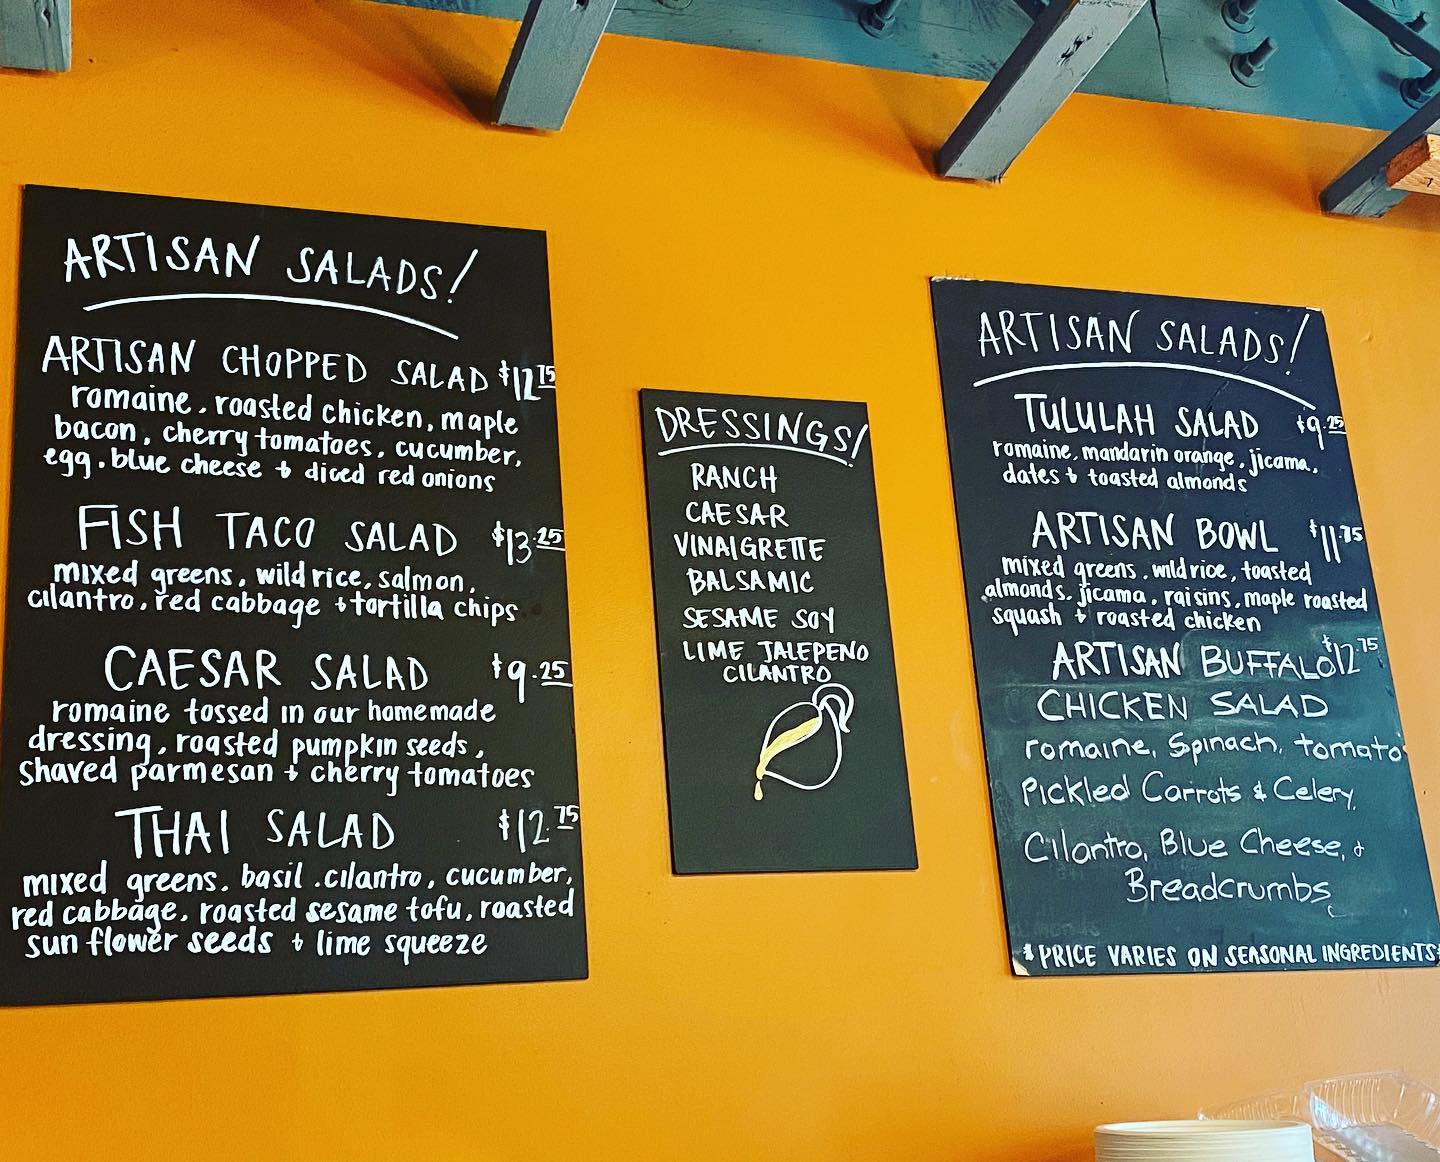 ARTISAN SALADS!
ARTISAN CHOPPED SALAD $12.75
romaine, roasted chicken, maple
bacon, cherry tomatoes, cucumber,
egg, blue cheese + diced red onions
FISH TACO SALAD $13.25
mixed greens, wild rice, salmon,
cilantro, red cabbage + tortilla chips
CAESAR SALAD $9.25
romaine tossed in our homemade
dressing, roasted pumpkin seeds,
shaved parmesan + cherry tomatoes
THAI SALAD $12.75
mixed greens, basil, cilantro, cucumber,
red cabbage, roasted sesame tofu, roasted
sun flower seeds + lime squeeze
DRESSINGS!
RANCH
CAESAR
VINAIGRETTE
BALSAMIC
SESAME SOY
LIME JALEPENO
CILANTRO
ARTISAN SALADS!
TULULAH SALAD $9.25
romaine, mandarin orange, jicama,
dates + toasted almonds
ARTISAN BOWL $11.75
mixed greens, wild rice, toasted
almonds, jicama, raisins, maple roasted
squash + roasted chicken
ARTISAN BUFFALO $12.75
CHICKEN SALAD
romaine, Spinach, tomato
Pickled Carrots & Celery,
Cilantro, Blue Cheese, &
Breadcrumbs
* PRICE VARIES ON SEASONAL INGREDIENTS*